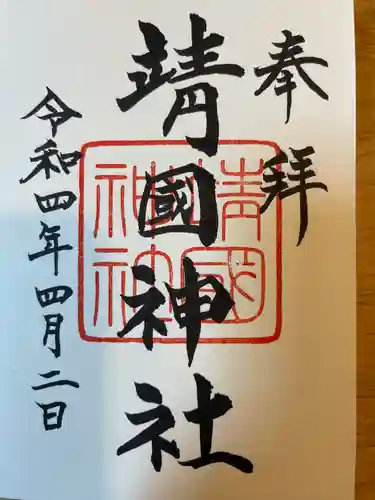 奉拝
靖國神社
令和四年四月二日
靖國神社